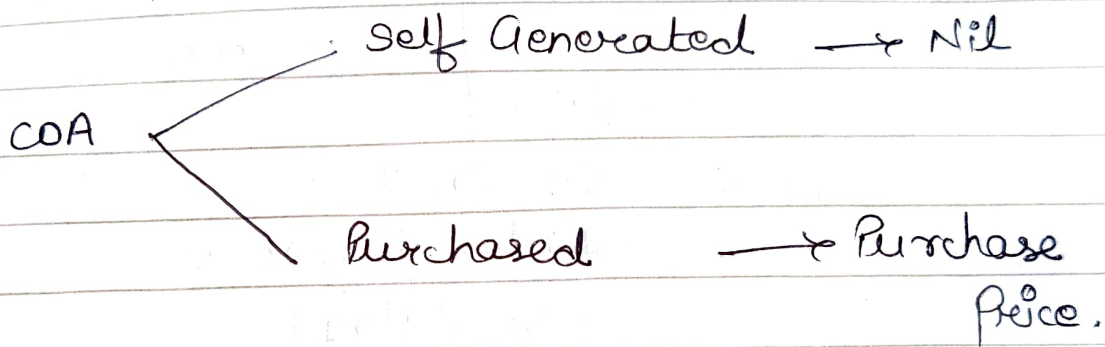 Self Generated → Nil
COA
Purchased → Purchase
Price.